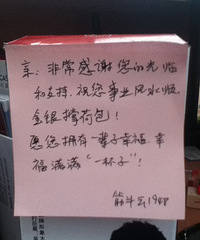 亲：非常感谢您的光临
和支持，祝您事业风水临
金银撑荷包！
愿您拥有一辈子幸福，幸
福满满“一杯子”！